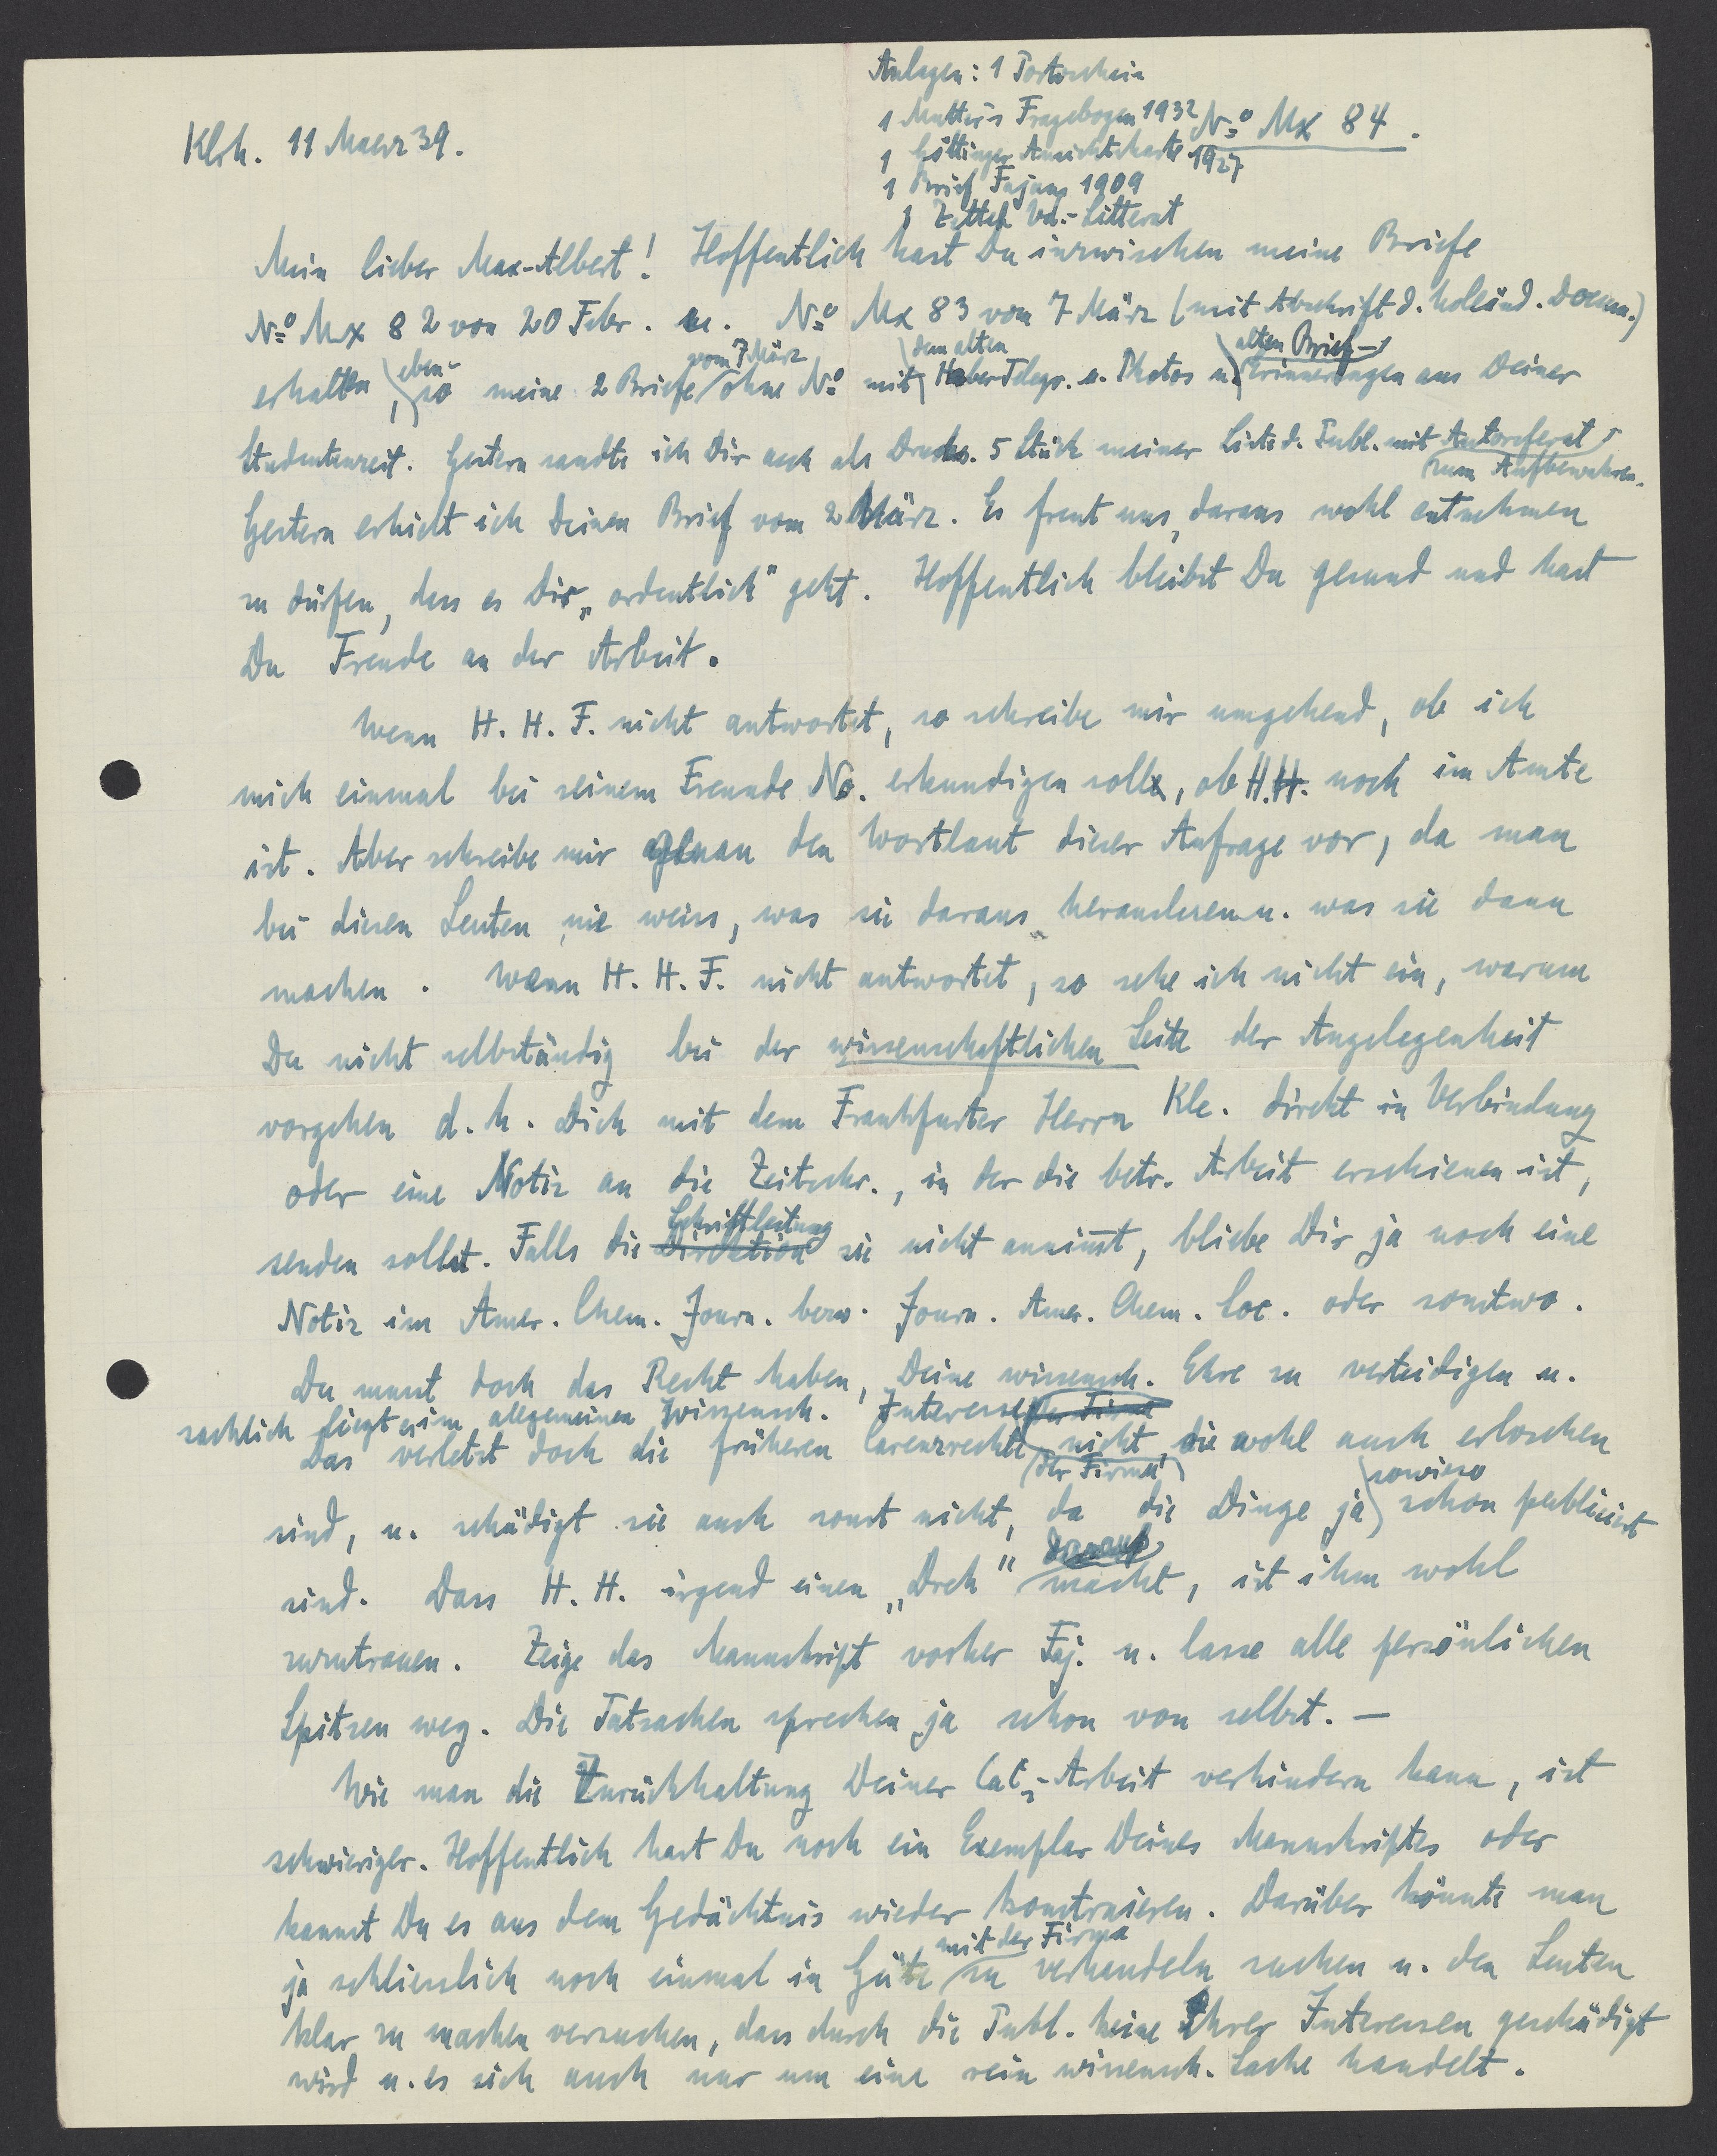 Anlagen: 1 Portoschein
1 Mutter's Fragebogen 1932
1 Göttinger Ansichtskarte 1927
1 Brief Fajans 1909
1 Zettel Vd.-Litterat
Klrh. 11 Maerz 39.
No Mx 84.
Mein lieber Max-Albert! Hoffentlich hast Du inzwischen meine Briefe
No Mx 82 von 20 Febr. u. No Mx 83 vom 7 März (mit Abschrift d. holländ. Docum.)
erhalten, ebenso meine 2 Briefe vom 7 März ohne No mit dem alten Haber Telegr. u. Photos u. alten Brief-Erinnerungen aus Deiner
Studentenzeit. Gestern sandte ich Dir auch als Drucks. 5 Stück meiner Liste d. Publ. mit Autoreferat zum Aufbewahren.
Gestern erhielt ich Deinen Brief vom 2 März. Es freut uns, daraus wohl entnehmen
zu dürfen, dass es Dir „ordentlich" geht. Hoffentlich bleibst Du gesund und hast
Du Freude an der Arbeit.
Wenn H. H. F. nicht antwortet, so schreibe mir umgehend, ob ich
mich einmal bei seinem Freunde No. erkundigen soll, ob H.H. noch im Amte
ist. Aber schreibe mir genau den Wortlaut dieser Anfrage vor, da man
bei diesen Leuten nie weiss, was sie daraus herauslesen u. was sie dann
machen. Wenn H. H. F. nicht antwortet, so sehe ich nicht ein, warum
Du nicht selbständig bei der wissenschaftlichen Seite der Angelegenheit
vorgehen d. h. Dich mit dem Frankfurter Herrn Kle. direkt in Verbindung
oder eine Notiz an die Zeitschr., in der die betr. Arbeit erschienen ist,
senden sollst. Falls die Direktion Schriftleitung sie nicht annimt, bliebe Dir ja noch eine
Notiz im Amer. Chem. Journ. bezw. Journ. Amer. Chem. Soc. oder sonstwo.
Du musst doch das Recht haben, Deine wissensch. Ehre zu verteidigen u.
sachlich liegt es im allgemeinen Wissensch. Interesse.
Das verletzt doch die früheren Carenzrechte der Firma nicht, die wohl auch erloschen
sind, u. schädigt sie auch sonst nicht, da die Dinge ja sowieso schon publiciert
sind. Dass H. H. irgend einen „Dreh" daraus macht, ist ihm wohl
zuzutrauen. Zeige das Manuskript vorher Faj. u. lasse alle persönlichen
Spitzen weg. Die Tatsachen sprechen ja schon von selbst. —
Wie man die Zurückhaltung Deiner CaC2-Arbeit verhindern kann, ist
schwieriger. Hoffentlich hast Du noch ein Exemplar Deines Manuskriptes oder
kannst Du es aus dem Gedächtnis wieder konstruieren. Darüber könnte man
ja schliesslich noch einmal in Güte mit der Firma zu verhandeln suchen u. den Leuten
klar zu machen versuchen, dass durch die Publ. keine Ihrer Interessen geschädigt
wird u. es sich auch nur um eine rein wissensch. Sache handelt.